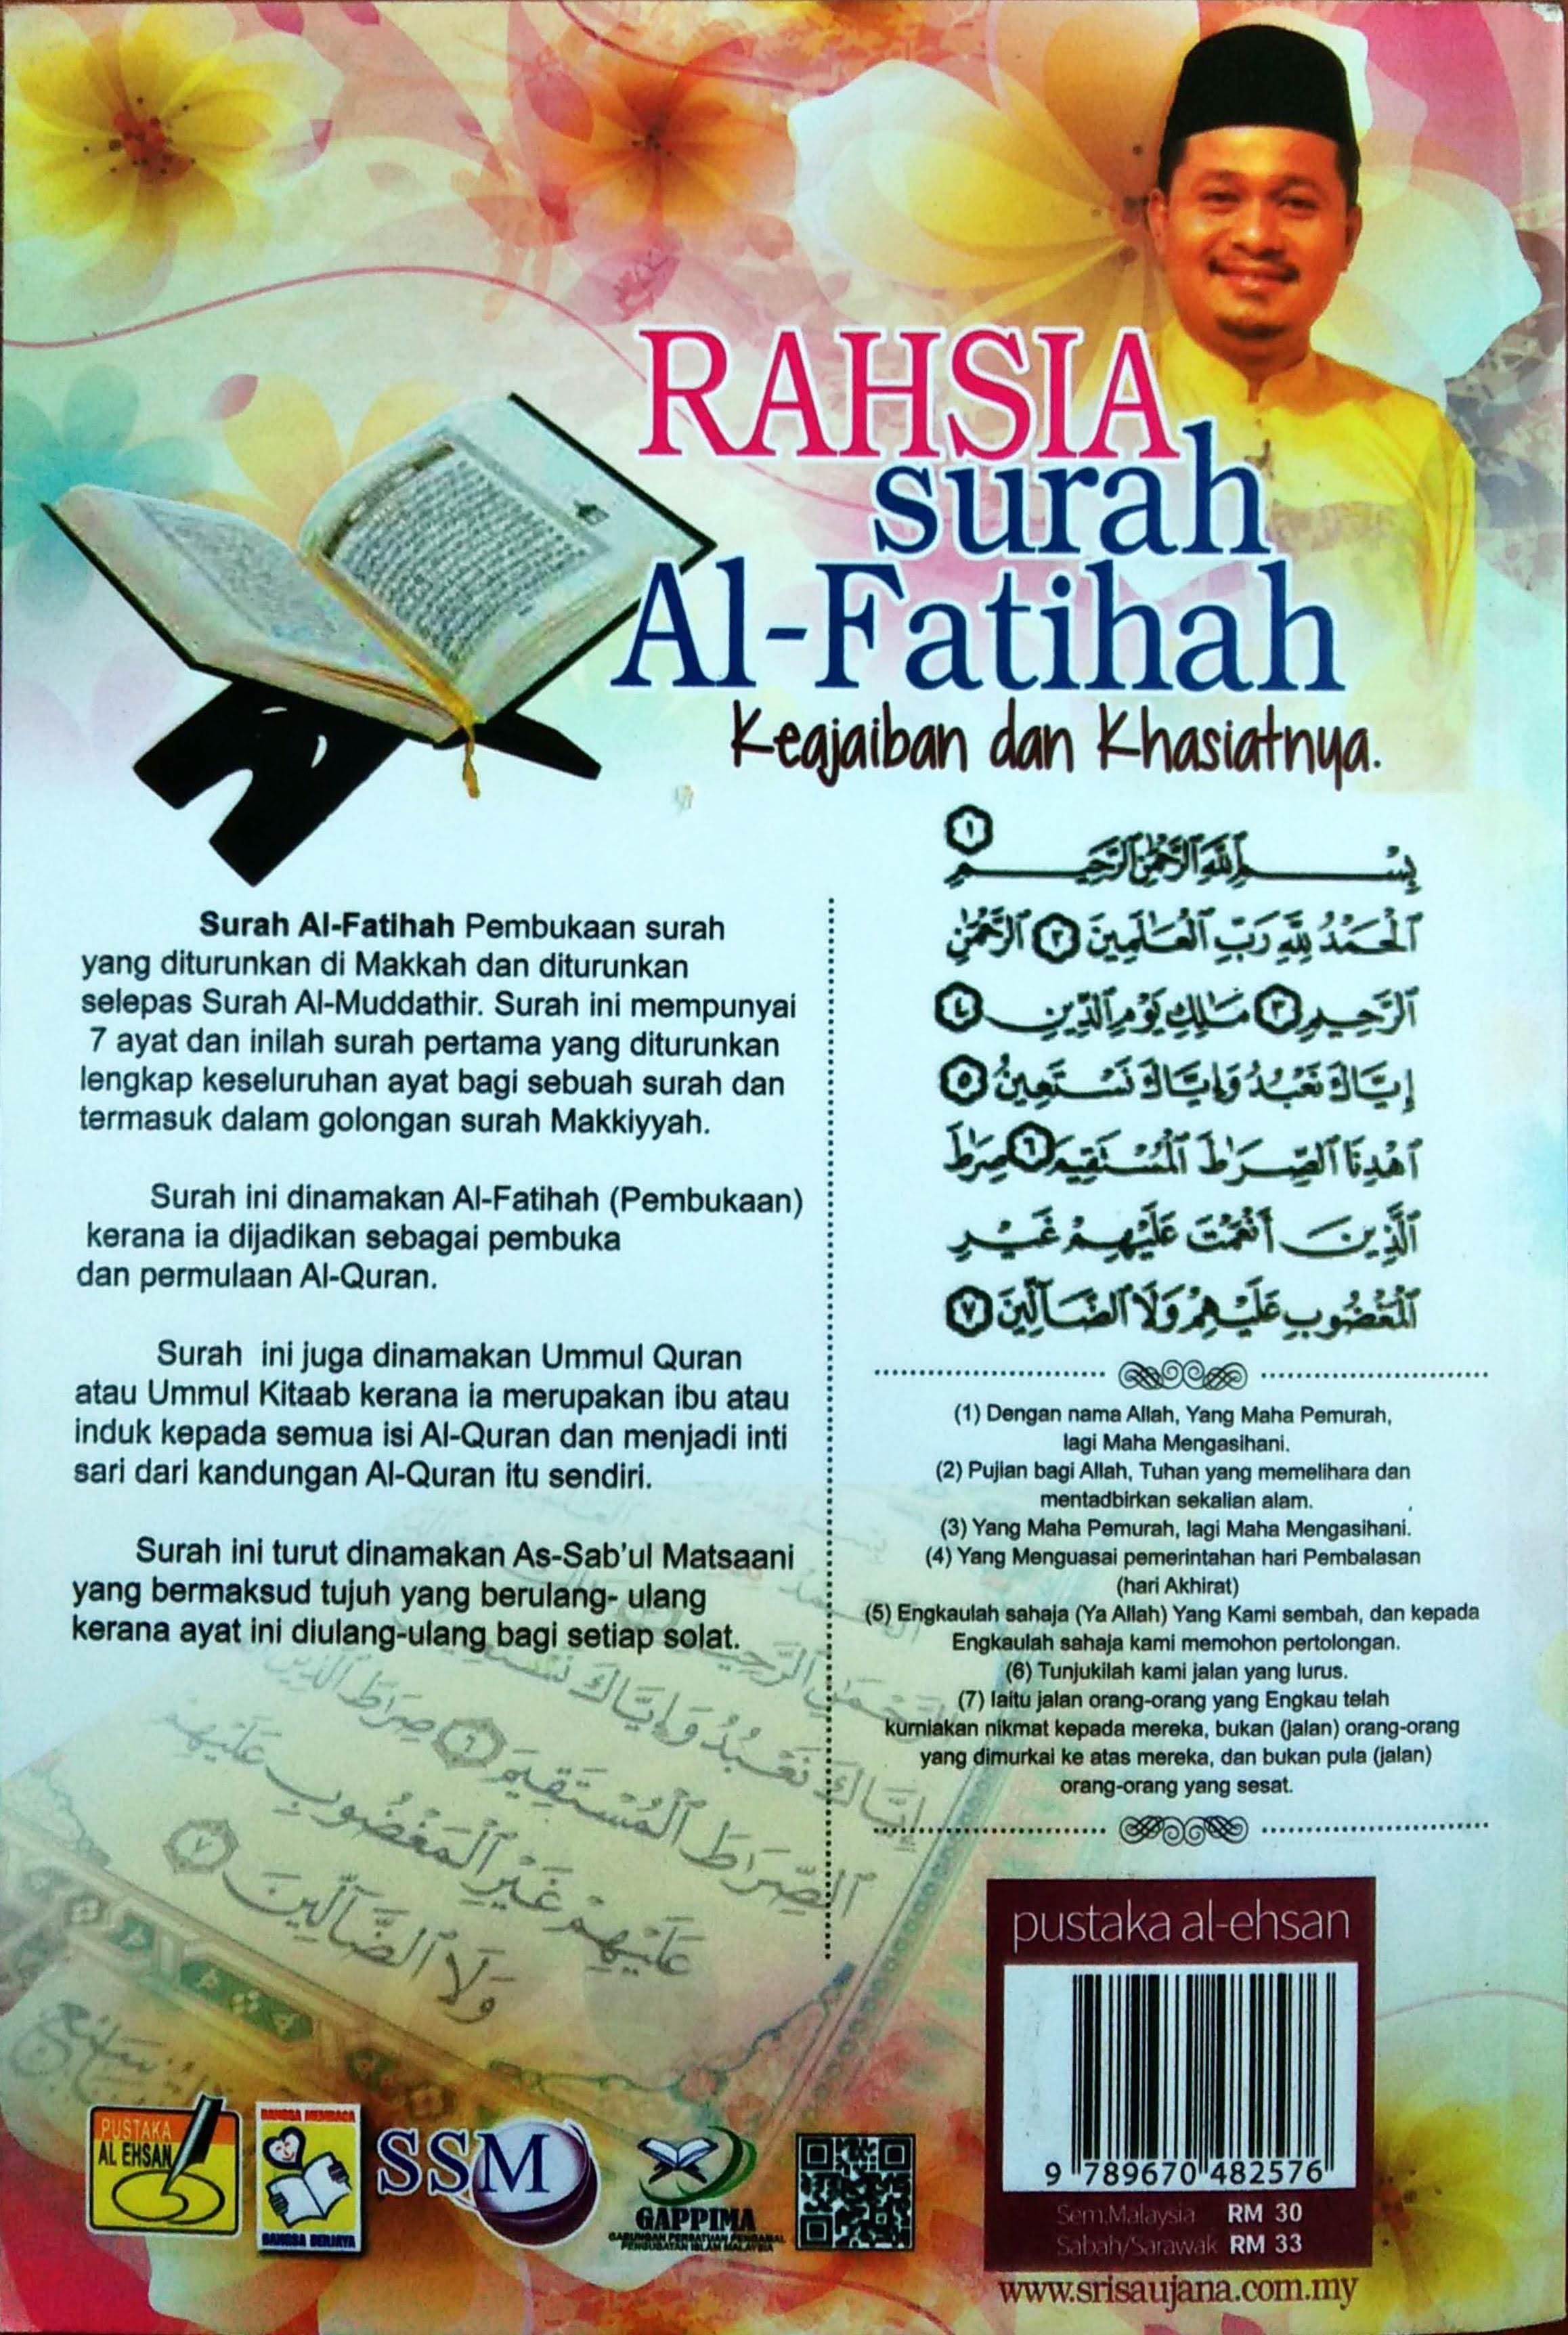 RAHSIA
surah
Al-Fatihah
Keajaiban dan Khasiatnya.
Surah Al-Fatihah Pembukaan surah
yang diturunkan di Makkah dan diturunkan
selepas Surah Al-Muddathir. Surah ini mempunyai
7 ayat dan inilah surah pertama yang diturunkan
lengkap keseluruhan ayat bagi sebuah surah dan
termasuk dalam golongan surah Makkiyyah.
Surah ini dinamakan Al-Fatihah (Pembukaan)
kerana ia dijadikan sebagai pembuka
dan permulaan Al-Quran.
Surah ini juga dinamakan Ummul Quran
atau Ummul Kitaab kerana ia merupakan ibu atau
induk kepada semua isi Al-Quran dan menjadi inti
sari dari kandungan Al-Quran itu sendiri.
Surah ini turut dinamakan As-Sab'ul Matsaani
yang bermaksud tujuh yang berulang- ulang
kerana ayat ini diulang-ulang bagi setiap solat.
بِسْمِ ٱللَّهِ ٱلرَّحْمَٰنِ ٱلرَّحِيمِ ١
ٱلْحَمْدُ لِلَّهِ رَبِّ ٱلْعَٰلَمِينَ ٢ ٱلرَّحْمَٰنِ
ٱلرَّحِيمِ ٣ مَٰلِكِ يَوْمِ ٱلدِّينِ ٤
إِيَّاكَ نَعْبُدُ وَإِيَّاكَ نَسْتَعِينُ ٥
ٱهْدِنَا ٱلصِّرَٰطَ ٱلْمُسْتَقِيمَ ٦ صِرَٰطَ
ٱلَّذِينَ أَنْعَمْتَ عَلَيْهِمْ غَيْرِ
ٱلْمَغْضُوبِ عَلَيْهِمْ وَلَا ٱلضَّآلِّينَ ٧
(1) Dengan nama Allah, Yang Maha Pemurah,
lagi Maha Mengasihani.
(2) Pujian bagi Allah, Tuhan yang memelihara dan
mentadbirkan sekalian alam.
(3) Yang Maha Pemurah, lagi Maha Mengasihani.
(4) Yang Menguasai pemerintahan hari Pembalasan
(hari Akhirat)
(5) Engkaulah sahaja (Ya Allah) Yang Kami sembah, dan kepada
Engkaulah sahaja kami memohon pertolongan.
(6) Tunjukilah kami jalan yang lurus.
(7) Iaitu jalan orang-orang yang Engkau telah
kurniakan nikmat kepada mereka, bukan (jalan) orang-orang
yang dimurkai ke atas mereka, dan bukan pula (jalan)
orang-orang yang sesat.
إِيَّاكَ نَعْبُدُ وَإِيَّاكَ
ٱلصِّرَاطَ ٱلْمُسْتَقِيمَ ٦ صِرَاطَ ٱلَّذِينَ
عَلَيْهِمْ غَيْرِ ٱلْمَغْضُوبِ عَلَيْهِمْ
وَلَا ٱلضَّآلِّينَ ٧
pustaka al-ehsan
9 789670 482576
Sem.Malaysia RM 30
Sabah/Sarawak RM 33
www.srisaujana.com.my
PUSTAKA
AL EHSAN
BANGSA MEMBACA
BANGSA BERJAYA
SSM
GAPPIMA
GABUNGAN PERSATUAN PENGAMAL
PENGUBATAN ISLAM MALAYSIA